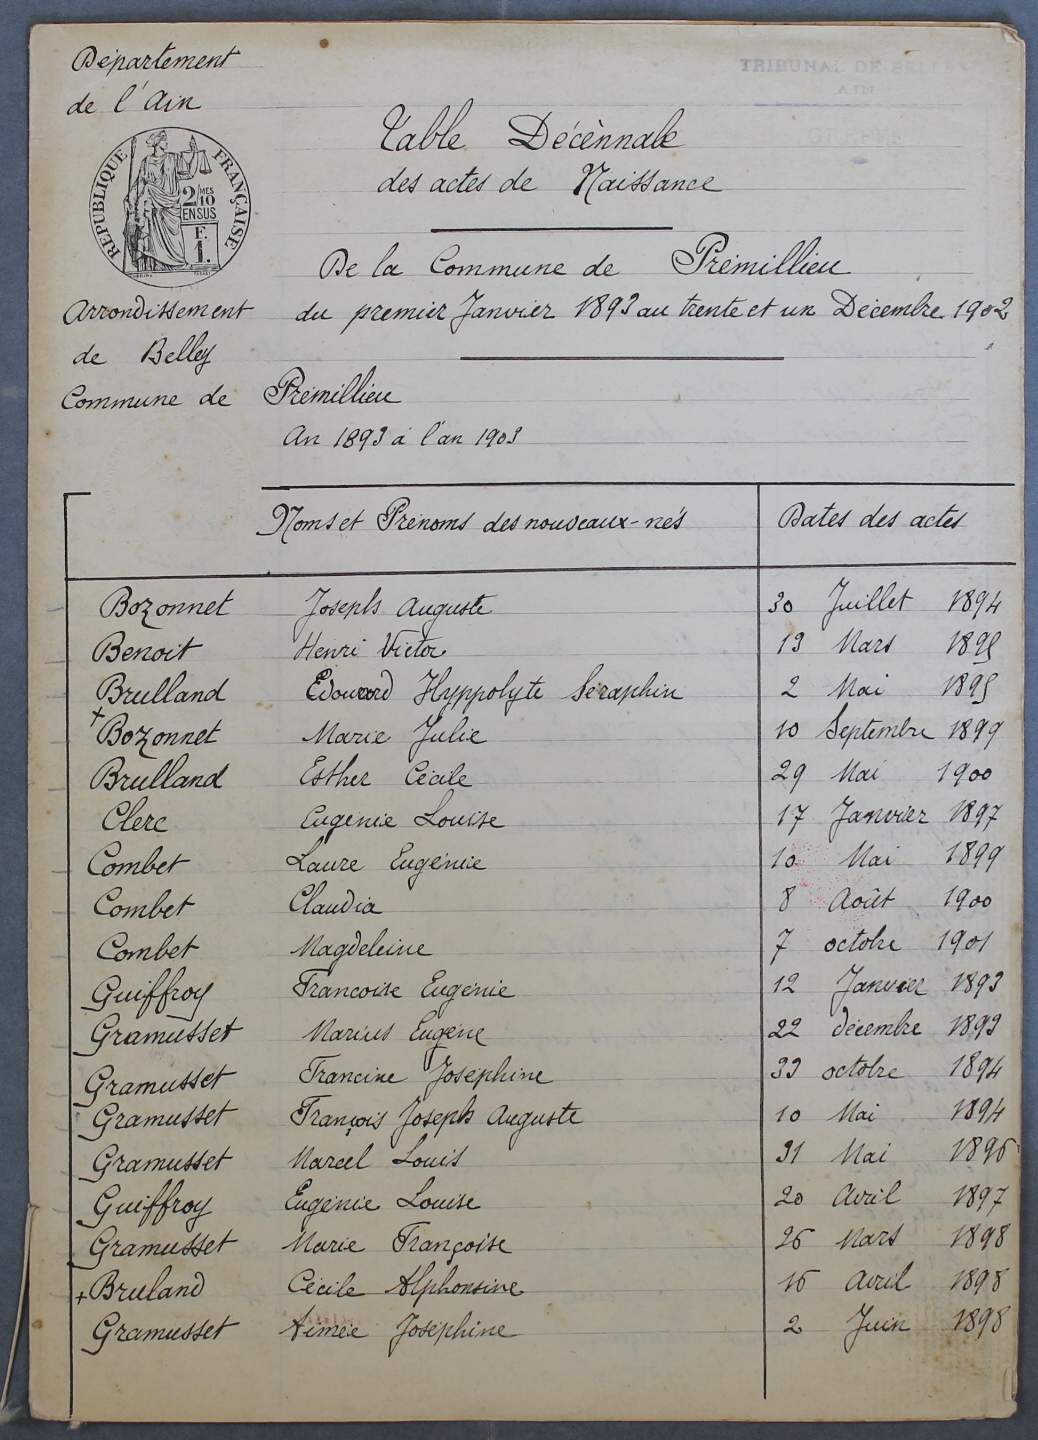 Département
de l'Ain
TRIBUNAL DE BELLEY
AIN
GREFFE
Table Décènnale
des actes de Naissance
RÉPUBLIQUE FRANÇAISE
2/10 MES
EN SUS
F.
1.
De la Commune de Prémillieu
Arrondissement du premier Janvier 1893 au trente et un Décembre 1902
de Belley
Commune de Prémillieu
An 1893 à l'an 1903
Noms et Prénoms des nouveaux-nés Dates des actes
Bozonnet Joseph Auguste 30 Juillet 1894
Benoit Henri Victor 13 Mars 1895
Brulland Edouard Hyppolyte Séraphin 2 Mai 1895
+ Bozonnet Marie Julie 10 Septembre 1899
Brulland Esther Cécile 29 Mai 1900
Clerc Eugénie Louise 17 Janvier 1897
Combet Laure Eugénie 10 Mai 1899
Combet Claudia 8 Août 1900
Combet Magdeleine 7 octobre 1901
Guiffroy Francoise Eugénie 12 Janvier 1893
Gramusset Marius Eugène 22 décembre 1893
Gramusset Francine Joséphine 33 octobre 1894
Gramusset François Joseph Auguste 10 Mai 1894
Gramusset Marcel Louis 31 Mai 1896
Guiffroy Eugénie Louise 20 Avril 1897
Gramusset Marie Françoise 26 Mars 1898
+ Bruland Cécile Alphonsine 16 Avril 1898
Gramusset Aimée Joséphine 2 Juin 1898